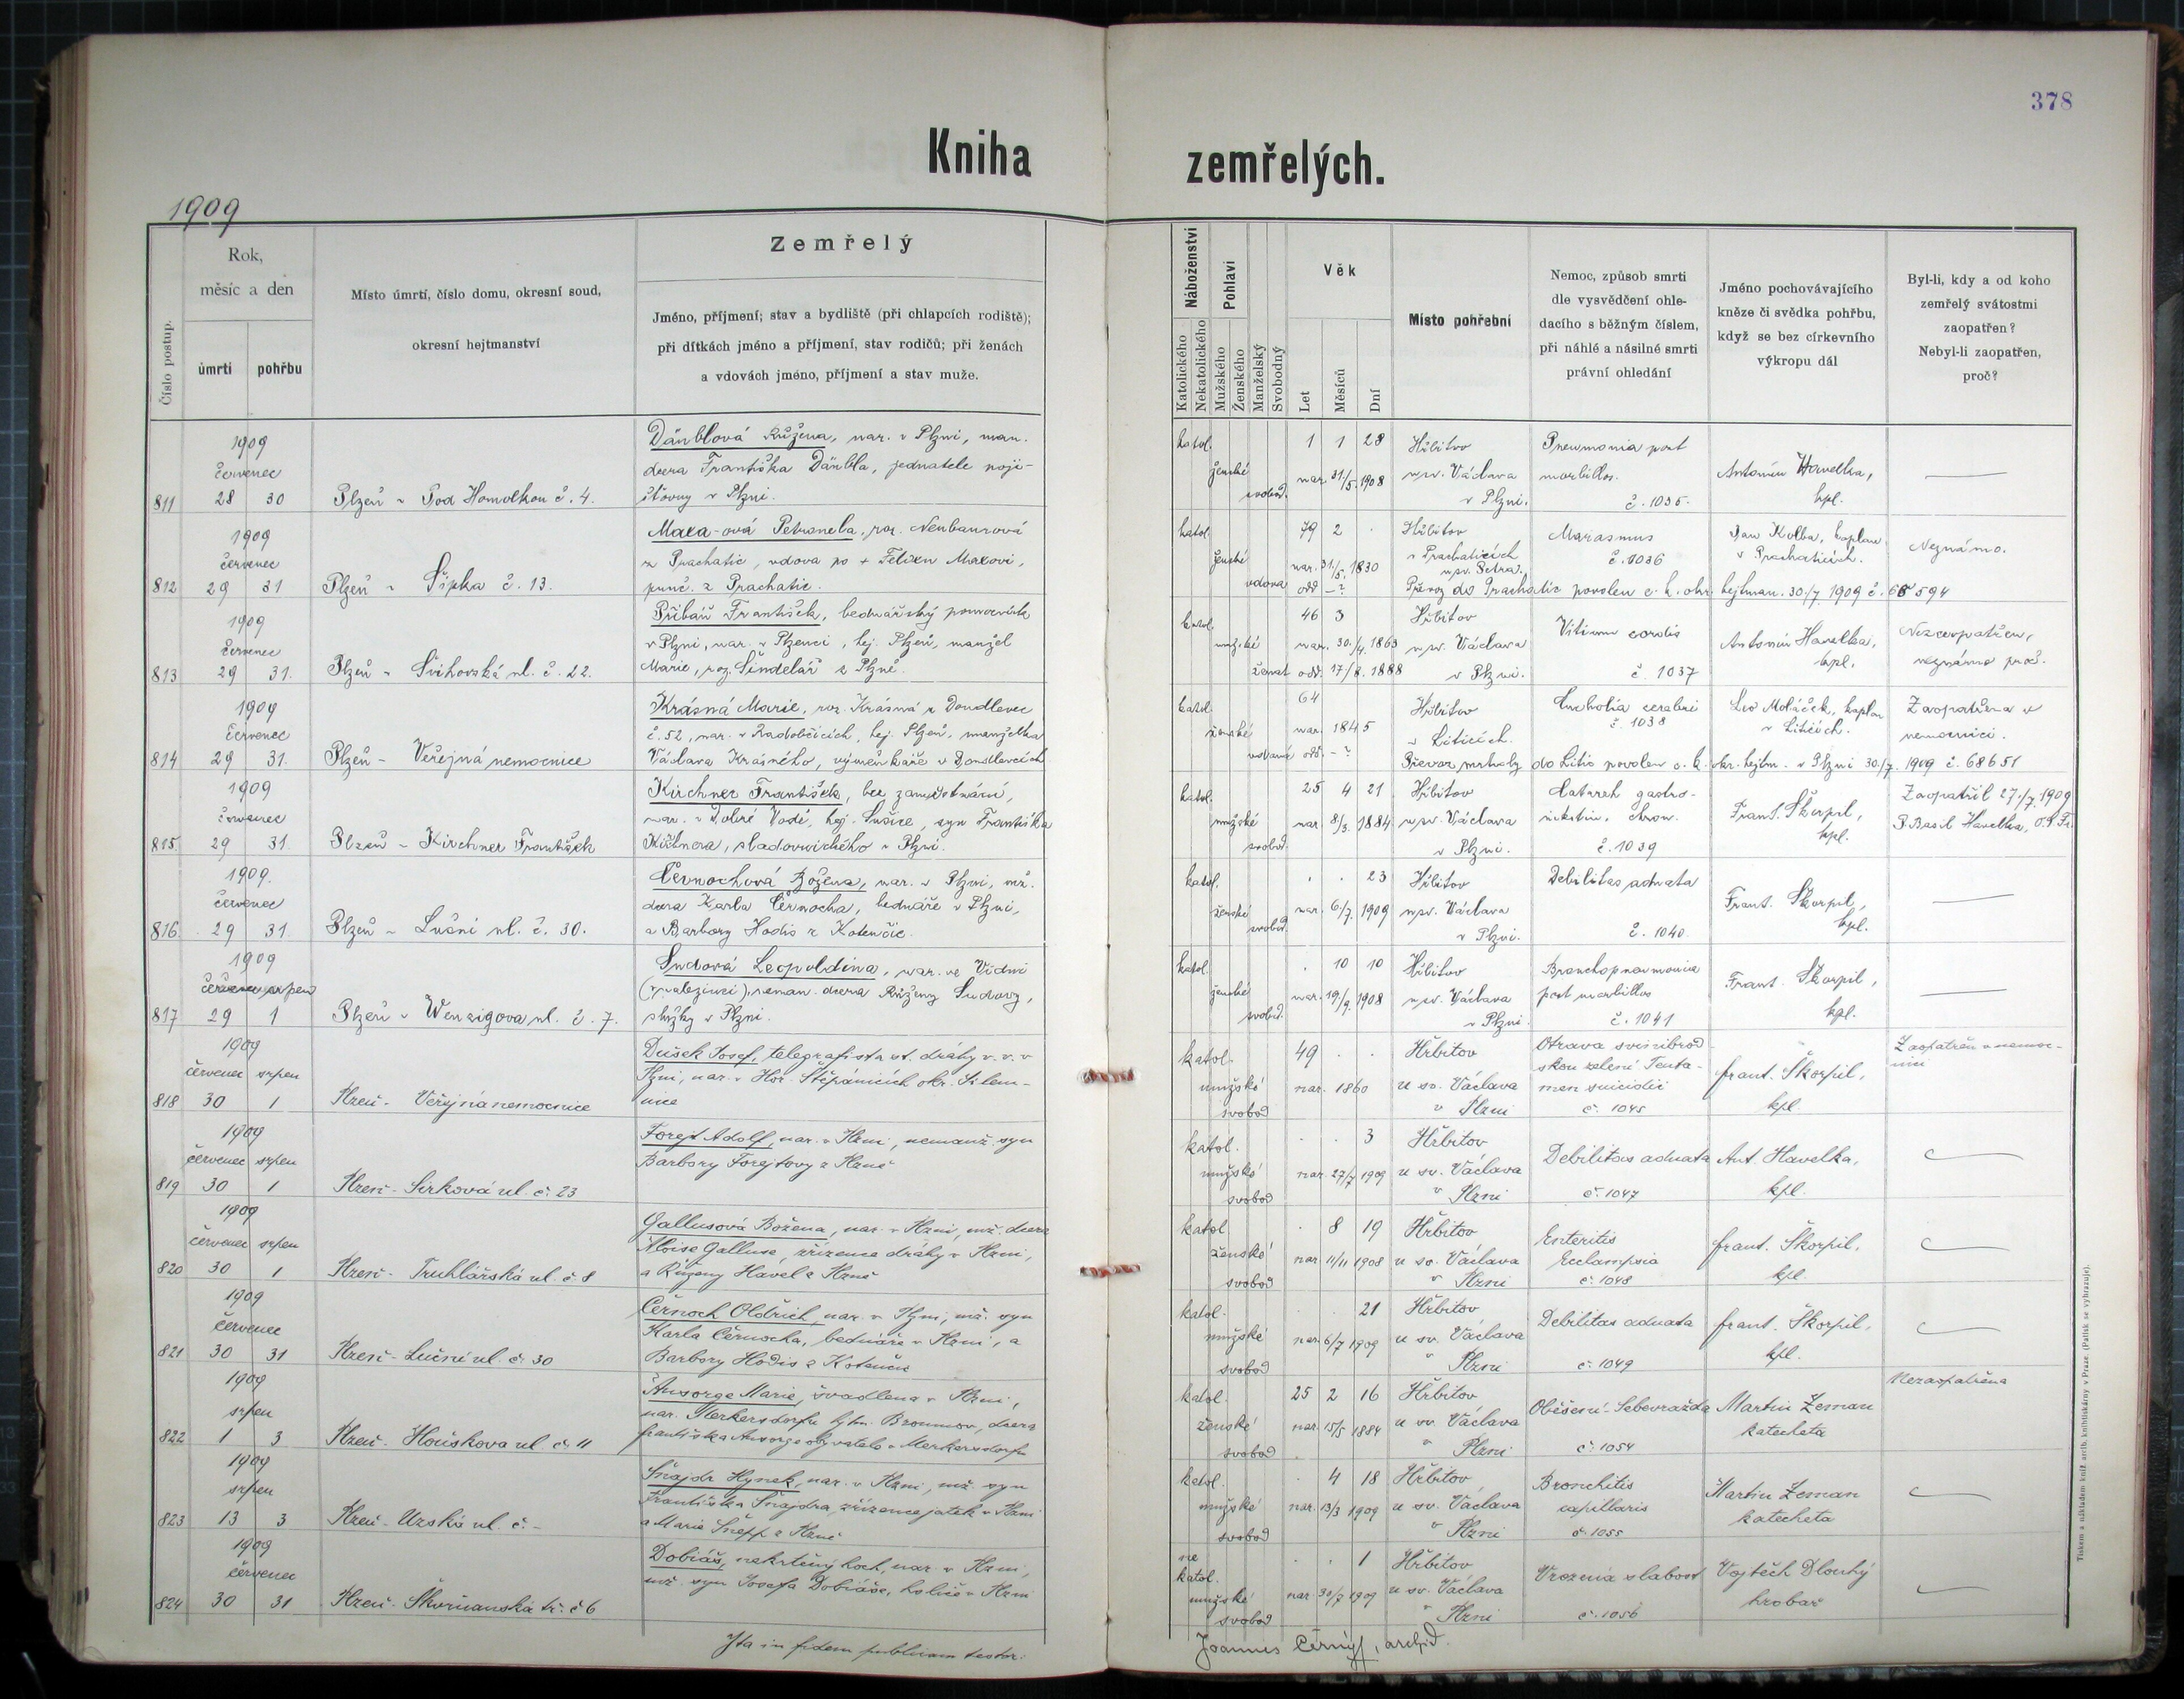 378
Kniha zemřelých.
1909
Číslo postup.
Rok,
měsíc a den
úmrtí
pohřbu
Místo úmrtí, číslo domu, okresní soud,
okresní hejtmanství
Zemřelý
Jméno, příjmení; stav a bydliště (při chlapcích rodiště);
při dítkách jméno a příjmení, stav rodičů; při ženách
a vdovách jméno, příjmení a stav muže.
Náboženství
Katolického
Nekatolického
Pohlaví
Mužského
Ženského
Manželský
Svobodný
Věk
Let
Měsíců
Dní
Místo pohřební
Nemoc, způsob smrti
dle vysvědčení ohle-
dacího s běžným číslem,
při náhlé a násilné smrti
právní ohledání
Jméno pochovávajícího
kněze či svědka pohřbu,
když se bez církevního
výkropu dál
Byl-li, kdy a od koho
zemřelý svátostmi
zaopatřen?
Nebyl-li zaopatřen,
proč?
811
1909
červenec
28 30
Plzeň - Pod Homolkou č. 4.
Dänblová Růžena, nar. v Plzni, man.
dcera Františka Dänbla, jednatele poji-
šťovny v Plzni.
katol.
ženské
svobod.
1 1 28
nar. 31/5. 1908
Hřbitov
u sv. Václava
v Plzni.
Pneumonia post
morbillos.
č. 1035.
Antonín Havelka,
kpl.
—
812
1909
červenec
29 31
Plzeň - Šipka č. 13.
Maxa-ová Petronela, roz. Neubauerová
z Prachatic, vdova po + Felixu Maxovi,
punč. z Prachatic.
katol.
ženské
vdova
79 2 .
nar. 31/5. 1830
odd. - ?
Hřbitov
v Prachaticích
u sv. Petra.
Marasmus
č. 1036
Jan Kolba, kaplan
v Prachaticích.
Neznámo.
Převoz do Prachatic povolen c. k. okr. hejtman. 30./7. 1909 č. 68594
813
1909
červenec
29 31.
Plzeň - Švihovská ul. č. 22.
Přibáň František, bednářský pomocník
v Plzni, nar. v Plzenci, hej. Plzeň, manžel
Marie, roz. Šindelář z Plzně.
katol.
mužské
ženat
46 3
nar. 30./4. 1863
odd. 17/8. 1888
Hřbitov
u sv. Václava
v Plzni.
Vitium cordis
č. 1037
Antonín Havelka,
kpl.
Nezaopatřen,
neznámo proč.
814
1909
červenec
29 31.
Plzeň - Veřejná nemocnice
Krásná Marie, roz. Krásná z Doudlevec
č. 52, nar. v Radobčicích, hej. Plzeň, manželka
Václava Krásného, výměnkáře v Doudlevcích
katol.
ženské
64
nar. 1845
odd. - ?
Hřbitov
v Liticích.
Embolia cerebri
č. 1038
Leo Moláček, kaplan
v Liticích.
Zaopatřena v
nemocnici.
Převoz mrtvoly do Litic povolen c. k. okr. hejtm. v Plzni 30./7. 1909 č. 68651
815
1909
červenec
29 31
Plzeň - Kirchner František
Kirchner František, bez zaměstnání,
nar. v Dobré Vodě, hej. Sušice, syn Františka
Kirchnera, sladovnického v Plzni.
katol.
mužské
svobod.
25 4 21
nar. 8/3. 1884
Hřbitov
u sv. Václava
v Plzni.
Catarrh gastro-
intestin. chron.
č. 1039
Frant. Škorpil,
kpl.
Zaopatřil 27./7. 1909
P. Basil Havelka, O. S. Fr.
816
1909.
červenec
29 31
Plzeň - Luční ul. č. 30.
Černochová Božena, nar. v Plzni, mž.
dcera Karla Černocha, bednáře v Plzni,
a Barbory Hodis z Kotenčic.
katol.
ženské
svobod.
. . 23
nar. 6/7. 1909
Hřbitov
u sv. Václava
v Plzni.
Debilitas adnata
č. 1040.
Frant. Škorpil,
kpl.
—
817
1909
červenec srpen
29 1
Plzeň - Wenzigova ul. č. 7.
Sudová Leopoldina, nar. ve Vídni
(v nalezinci), neman. dcera Růženy Sudovy,
služky v Plzni.
katol.
ženské
svobod.
. 10 10
nar. 19./9. 1908
Hřbitov
u sv. Václava
v Plzni.
Bronchopneumonia
post morbillos
č. 1041
Frant. Škorpil,
kpl.
—
818
1909
červenec srpen
30 1
Plzeň - Veřejná nemocnice
Dušek Josef, telegrafista st. dráhy v. v. v
Plzni, nar. v Hor. Štěpanicích okr. Jilem-
nice
katol.
mužské
svobod
49 . .
nar. 1860
Hřbitov
u sv. Václava
v Plzni
Otrava svinibrod
skou zelení Tenta-
men suicidii
č. 1045
Frant. Škorpil,
kpl.
Zaopatřen v nemoc-
nici
819
1909
červenec srpen
30 1
Plzeň - Sirková ul. č. 23
Forejt Adolf, nar. v Plzni, nemanž. syn
Barbory Forejtovy z Plzně
katol.
mužské
svobod
. . 3
nar. 27/7 1909
Hřbitov
u sv. Václava
v Plzni
Debilitas adnata
č. 1047
Ant. Havelka,
kpl.
—
820
1909
červenec srpen
30 1
Plzeň - Truhlářská ul. č. 8
Gallusová Božena, nar. v Plzni, mž. dcera
Aloise Galluse, zřízence dráhy v Plzni,
a Růženy Havel z Plzně
katol
ženské
svobod
. 8 19
nar 11/11 1908
Hřbitov
u sv. Václava
v Plzni
Enteritis
Eclampsia
č. 1048
Frant. Škorpil,
kpl.
—
821
1909
červenec
30 31
Plzeň - Luční ul. č. 30
Černoch Oldřich, nar. v Plzni, mž. syn
Karla Černocha, bednáře v Plzni, a
Barbory Hodis z Kotenčic
katol.
mužské
svobod
. . 21
nar. 6/7 1909
Hřbitov
u sv. Václava
v Plzni
Debilitas adnata
č. 1049
Frant. Škorpil,
kpl.
—
822
1909
srpen
1 3
Plzeň - Houškova ul č. 11
Ansorge Marie, švadlena v Plzni,
nar. Merkersdorfu hjtm. Broumov, dcera
Františka Ansorge obyvatele v Merkersdorfu
katol.
ženské
svobod
25 2 16
nar. 15/5 1884
Hřbitov
u sv. Václava
v Plzni
Oběšení. Sebevražda
č. 1054
Martin Zeman
katecheta
Nezaopatřena
823
1909
srpen
13 3
Plzeň - Úzská ul. č. -
Šnajdr Hynek, nar. v Plzni, mž. syn
Františka Šnajdra, zřízence jatek v Plzni
a Marie Šnepp z Plzně
katol.
mužské
svobod
. 4 18
nar. 13/3 1909
Hřbitov
u sv. Václava
v Plzni
Bronchitis
capillaris
č. 1055
Martin Zeman
katecheta
—
824
1909
červenec
30 31
Plzeň - Skvrňanská tř. č 6
Dobiáš, nekřtěný hoch, nar. v Plzni,
mž. syn Josefa Dobiáše, holiče v Plzni
ne
katol.
mužské
svobod
. . 1
nar 30/7 1909
Hřbitov
u sv. Václava
v Plzni
Vrozená slabost
č. 1056
Vojtěch Dlouhý
hrobař
—
Ita in fidem publicam testor:
Joannes Černý, archid.
Tiskem a nákladem kníž. arcib. knihtiskárny v Praze. (Patisk se vyhrazuje).